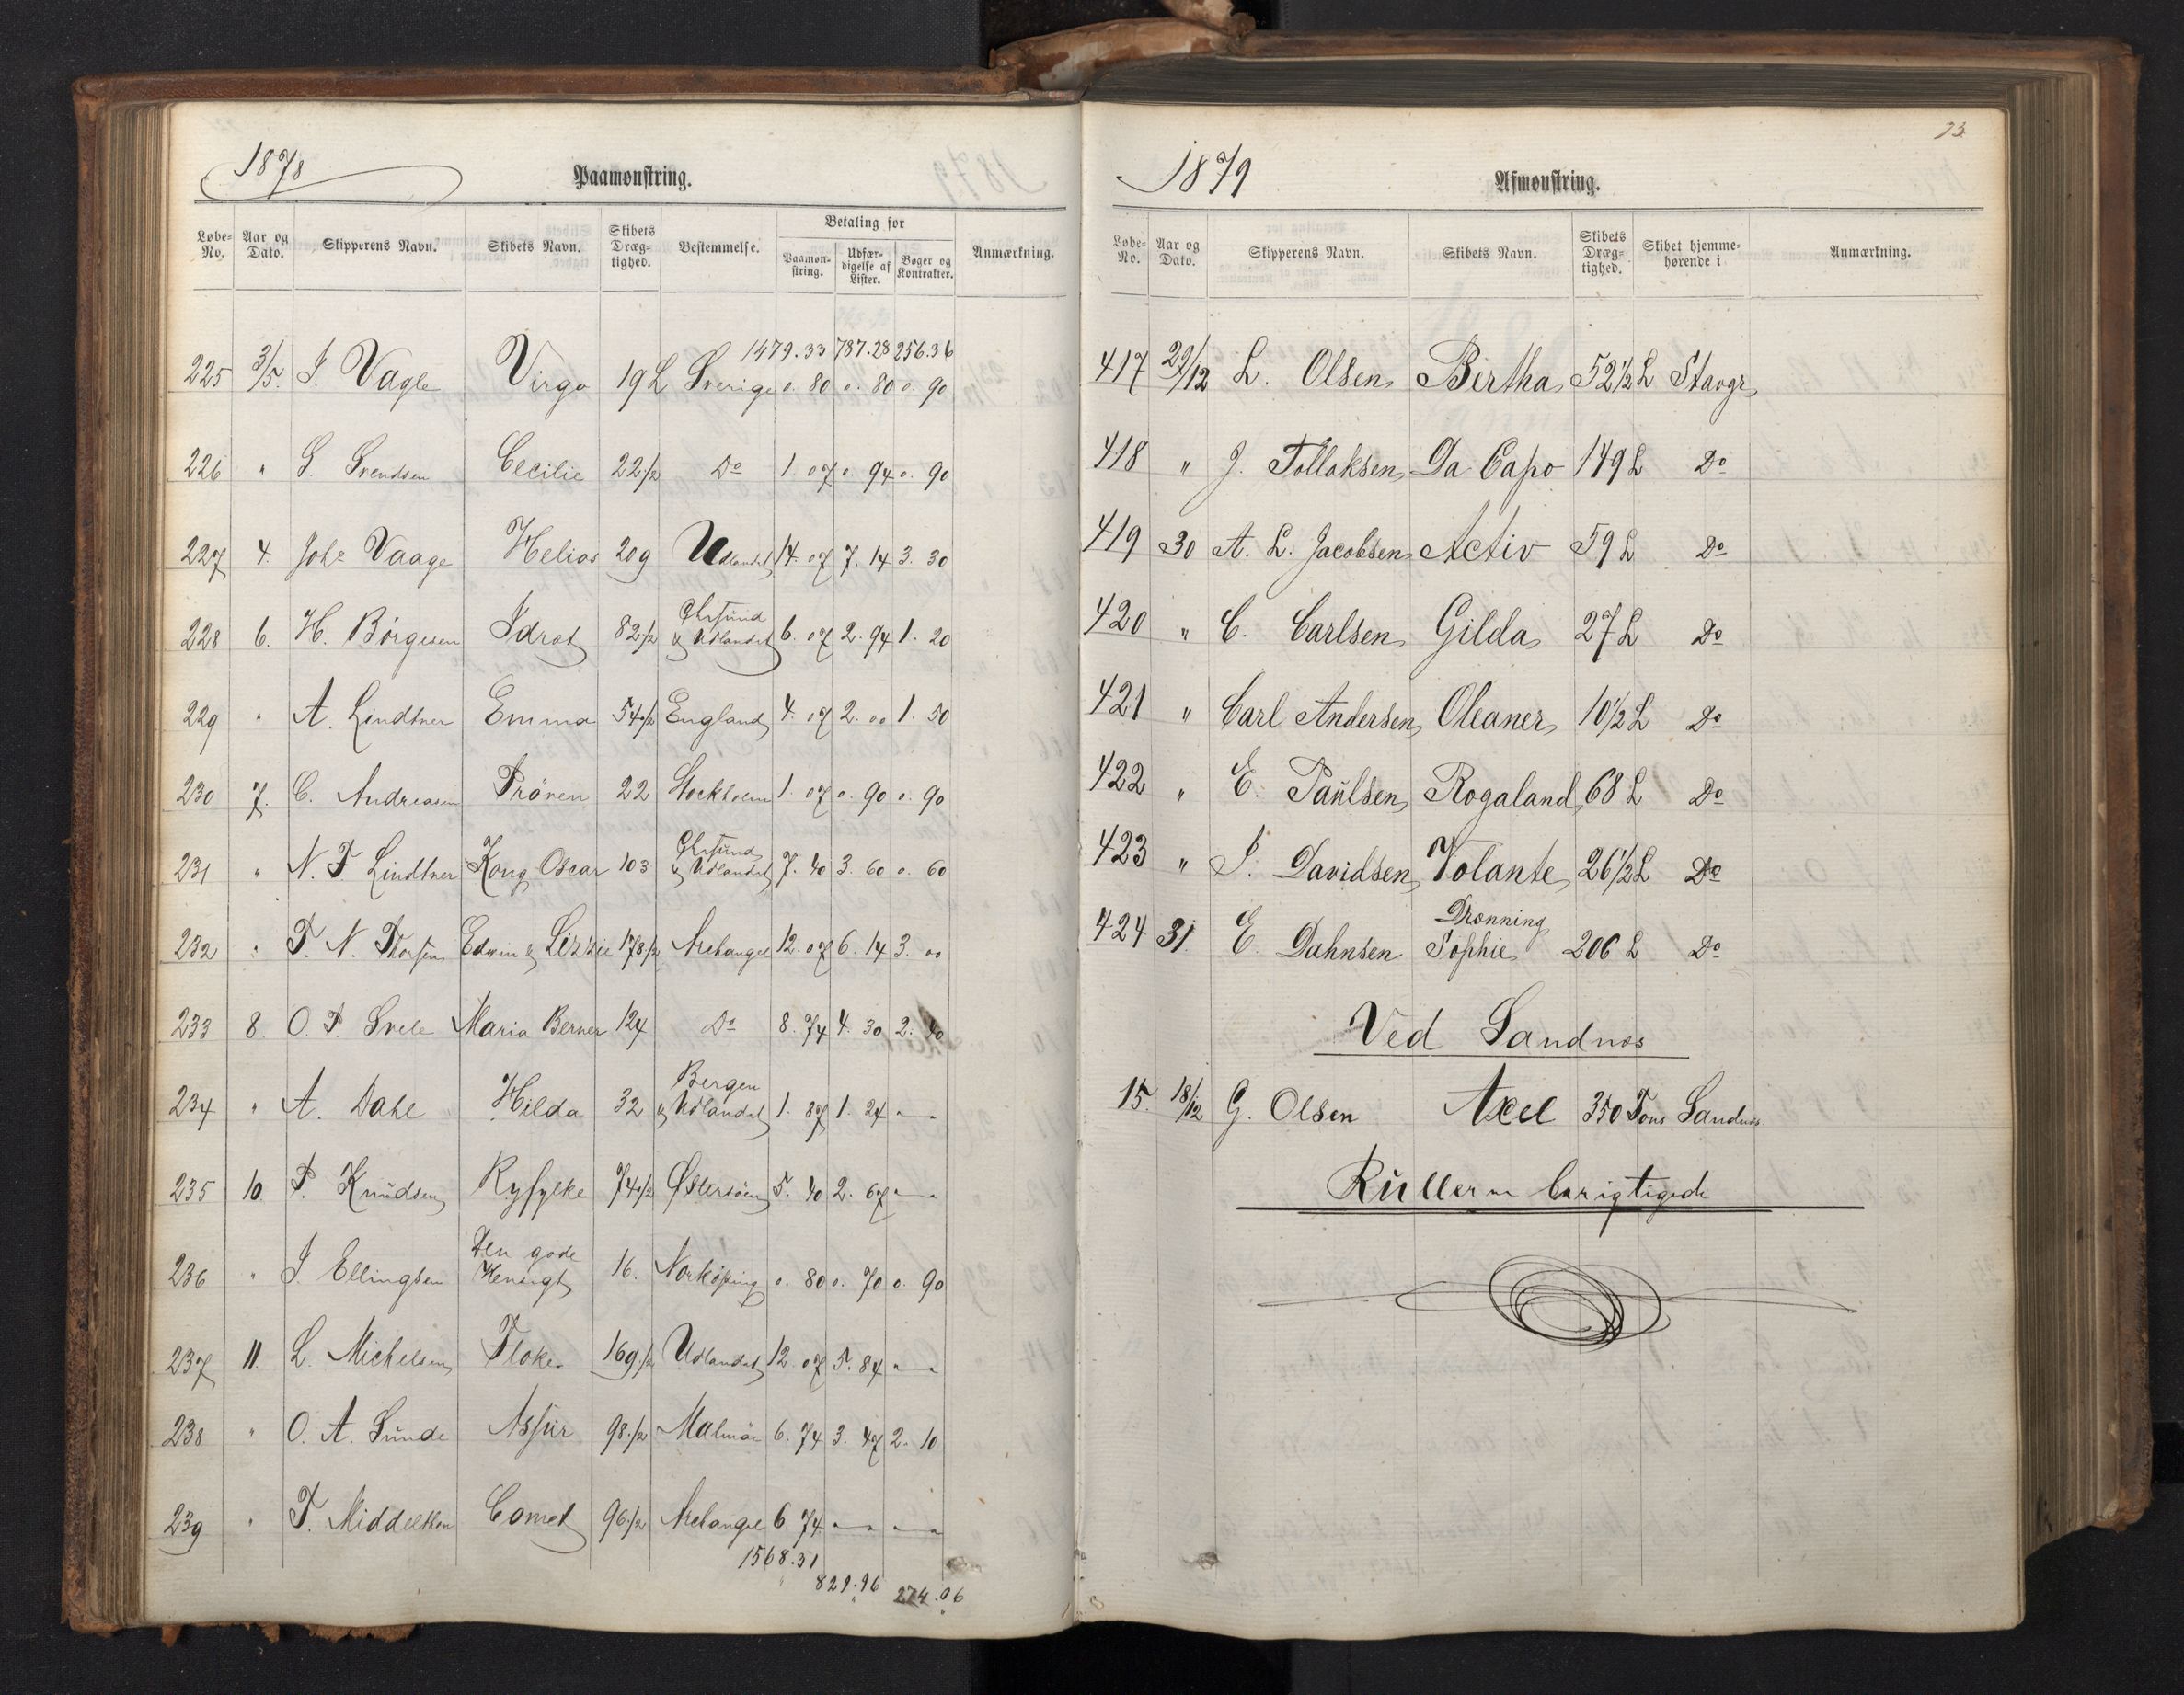 1878
Paamønstring.
Løbe-No. Aar og Dato. Skipperens Navn. Skibets Navn. Skibets Dræg-tighed. Bestemmelse. Betaling for Anmærkning.
Paamøn-string. Udfær-digelse af Lister. Bøger og Kontrakter.
1479.33 787.28 256.36
225 3/5. J. Vagle Virgo 19 L Sverige 0. 80 0. 80 0. 90
226 " S. Svendsen Cecilie 22 1/2 Do 1. 07 0. 94 0. 90
227 4. Johs Vaage Helios 209 Udlandet 14. 07 7. 14 3. 30
228 6. H. Börgesen Idræt 82 1/2 Chrsund & Udlandet 6. 07 2. 94 1. 20
229 " A. Lindtner Emma 54 1/2 England 4. 07 2. 00 1. 50
230 7. C. Andreasen Pröven 22 Stockholm 1. 07 0. 90 0. 90
231 " N. F. Lindtner Kong Oscar 103 Chrsund & Udlandet 7. 40 3. 60 0. 60
232 " T. N. Thorsen Edwin & Lizzie 178 1/2 Archangel 12. 07 6. 14 3. 00
233 8 O. T. Svele Maria Berner 124 Do 8. 74 4. 30 2. 40
234 " A. Dahl Hilda 32 Bergen & Udlandet 1. 87 1. 24 " "
235 10 P. Knudsen Ryfylke 74 1/2 Østersöen 5. 40 2. 67 " "
236 " J. Ellingsen Den gode Hensigt 16. Norköping 0. 80 0. 70 0. 90
237 11. L. Michelsen Floke 169 1/2 Udlandet 12. 07 5. 84 " "
238 " O. A. Sunde Assur 98 1/2 Malmöe 6. 74 3. 47 2. 10
239 " T. Middelthon Comet 96 1/2 Archangel 6. 74 " " " "
1568.31
829.96 274.06
73
1879
Afmønstring.
Løbe-No. Aar og Dato. Skipperens Navn. Skibets Navn. Skibets Dræg-tighed. Skibet hjemme-hørende i Anmærkning.
417 29/12 L. Olsen Bertha 52 1/2 L Stavgr
418 " J. Tollaksen Da Capo 149 L Do
419 30 A. L. Jacobsen Activ 59 L Do
420 " C. Carlsen Gilda 27 L Do
421 " Carl Andersen Oleaner 10 1/2 L Do
422 " E. Paulsen Rogaland 68 L Do
423 " J. Davidsen Volante 26 1/2 L Do
424 31. E. Dahnsen Dronning Sophie 206 L Do
Ved Sandnæs
15. 18/12 G. Olsen Axel 350 Tons Sandnæs
Rullerne berigtigede